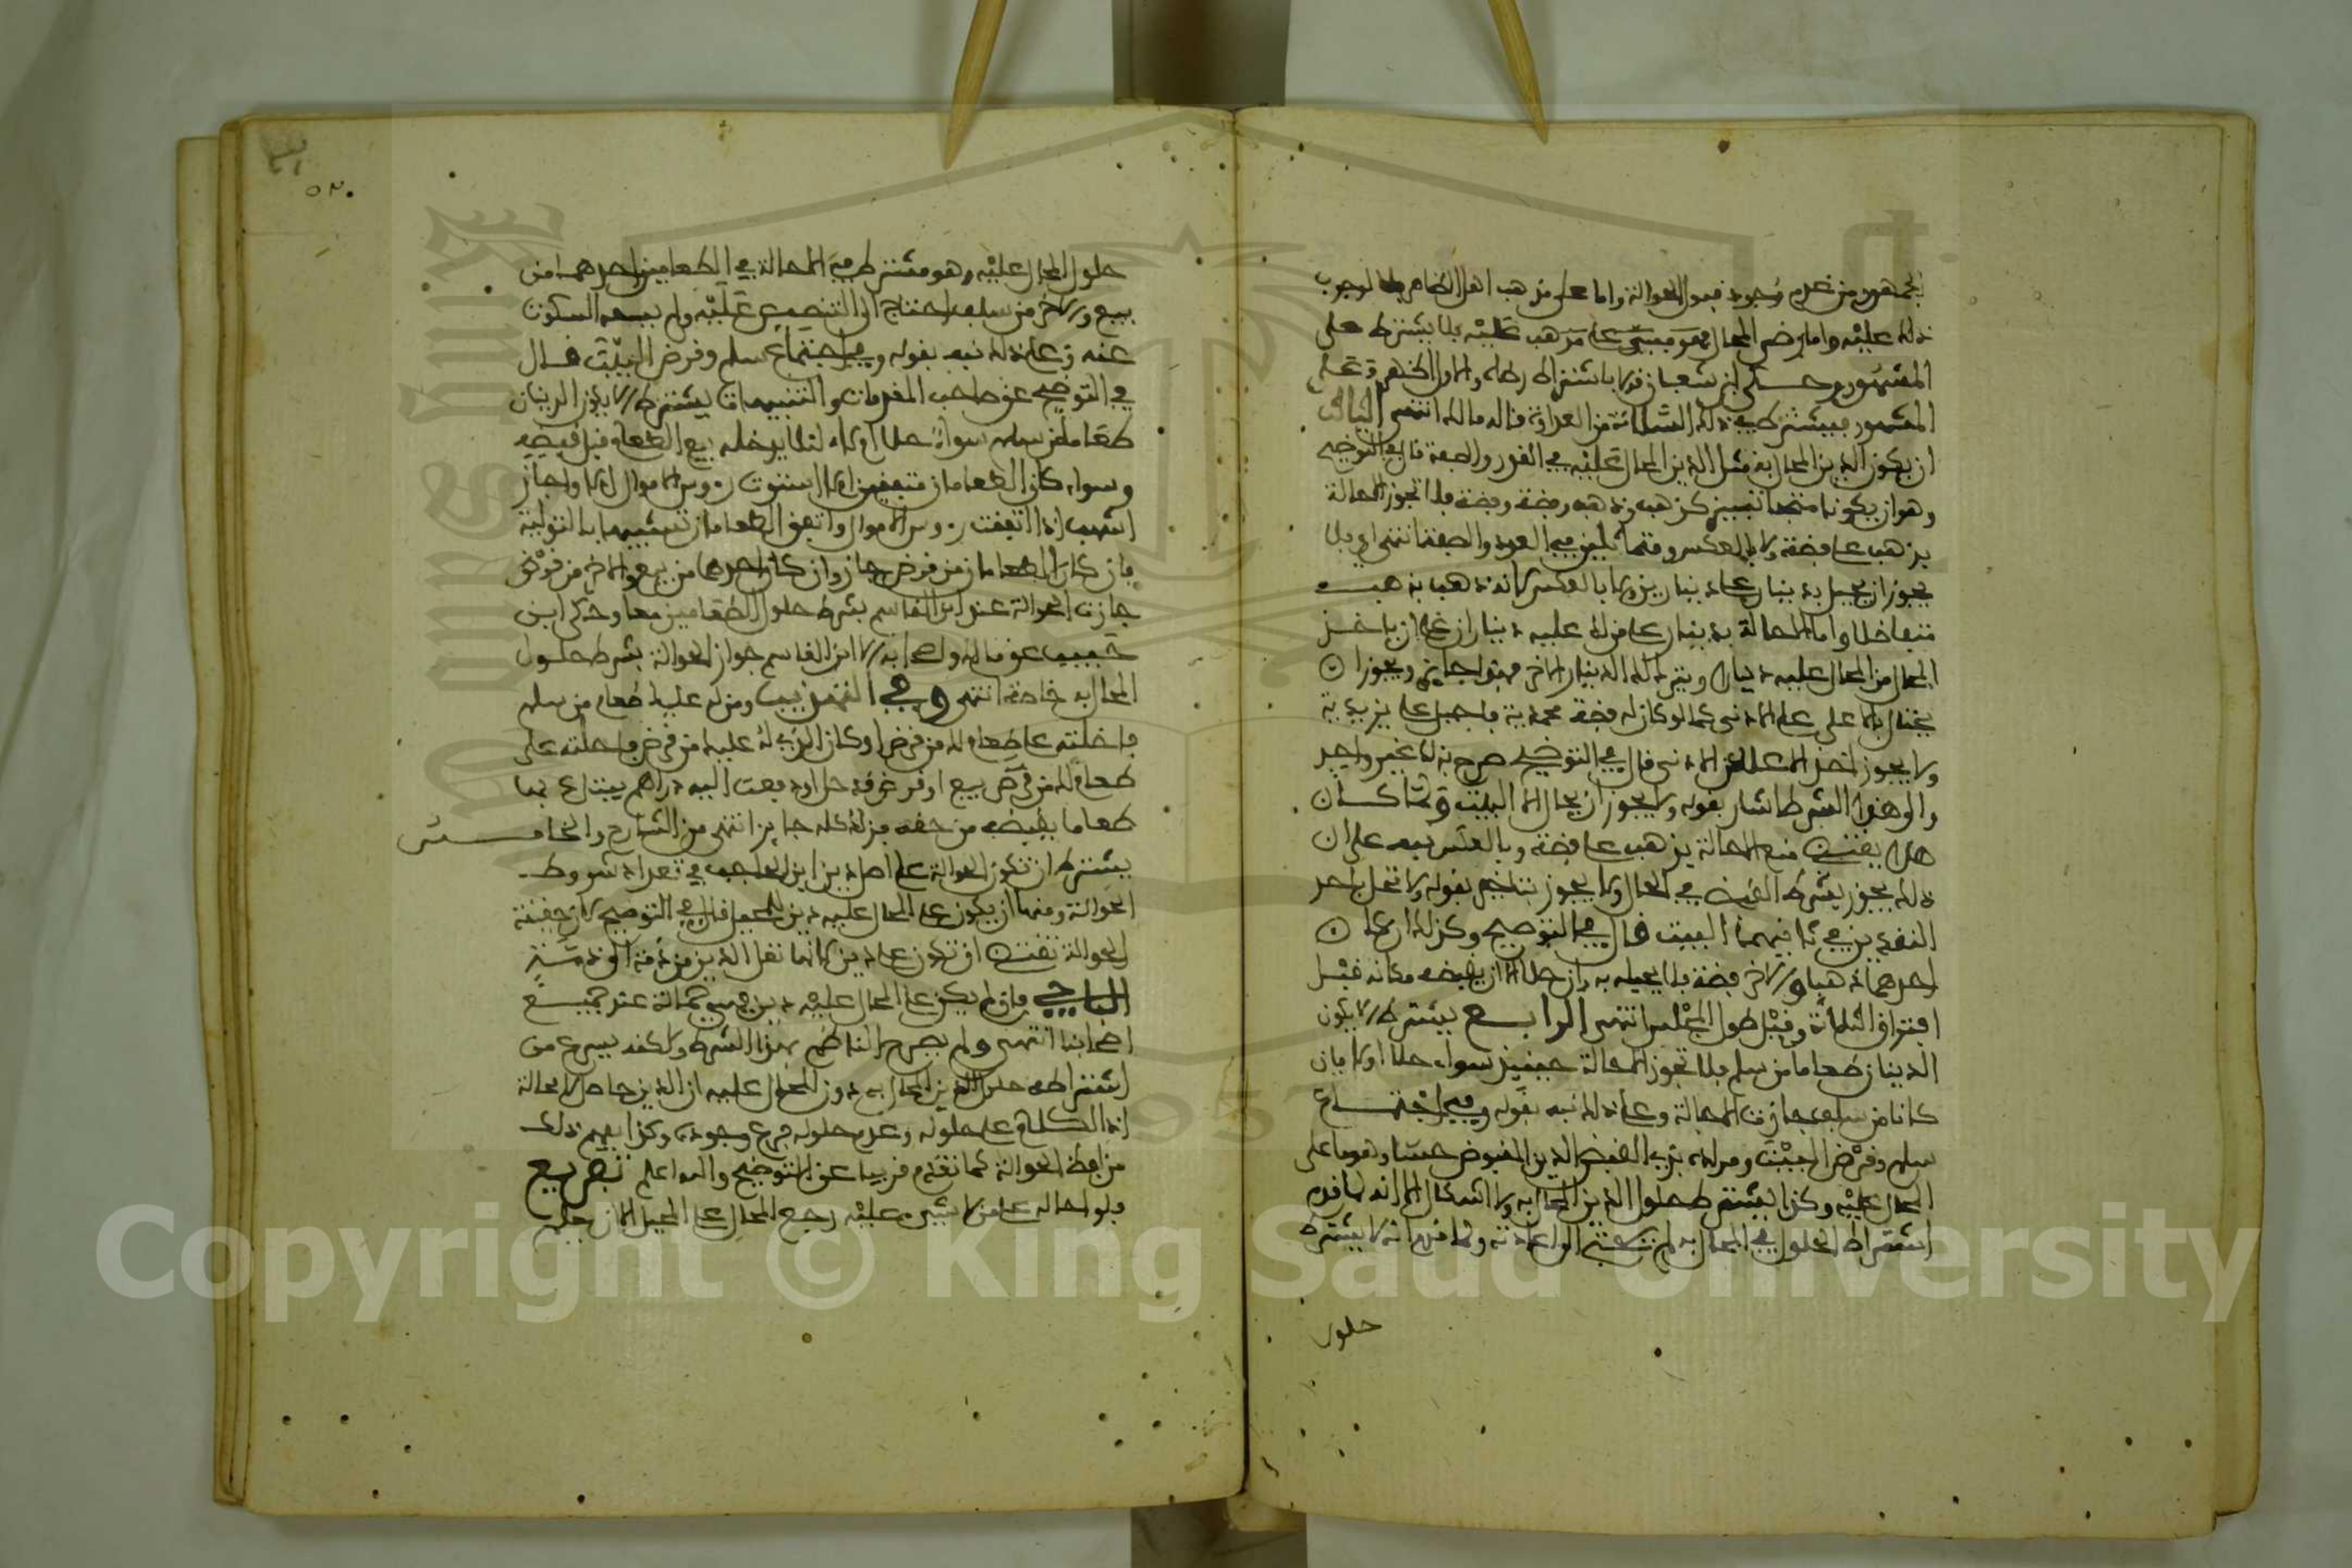 الجمهور من عدم وجوب قبول الحوالة واما على مذهب اهل الظاهر لوجوب
ذلك عليه واما رضى المحال عليه فلا يشترط على
المشهور وحكى ابن شعبان قولا باشتراط رضاه والاول اظهر وعلى
المشهور فيشترط في ذلك السلامة من العداوة قاله مالك انتهى الثالث
ان يكون الدين المحال به مثل الدين المحال عليه في القدر والصفة قال في التوضيح
وهو ان يكونا متجانسين كذهب وذهب وفضة وفضة فلا تجوز الاحالة
بذهب على فضة ولا بالعكس ومتماثلين في القدر والصفة انتهى اي فلا
يجوز ان يحيل بدينار على دينارين ولا بالعكس لانه ذهب بذهب
متفاضلا واما الاحالة بدينار على من له عليه ديناران على ان ياخذ
المحال من المحال عليه دينارا ويترك له الدينار الاخر فهو جايز ويجوز ان
يحتال بالاعلى على الادنى كما لو كان له فضة محمدية فاحيل على يزيدية
ولا يجوز اخذ الاعلى عن الادنى قال في التوضيح صرح بذلك غير واحد
والى هذا الشرط اشار بقوله ولا يجوز ان يحال الا البيت ولما كان
هذا يقتضي منع الاحالة بذهب على فضة وبالعكس نبه على ان
ذلك يجوز بشرط القبض في الحال ولا يجوز بتاخير بقوله ولا تحل باحد
النقدين في ثانيهما البيت قال في التوضيح وكذلك ان كان
احدهما ذهبا والاخر فضة فلا يحيله به وان حلا الا ان يقبضه مكانه قبل
افتراق الثلاثة وقبل طول المجلس انتهى الرابع يشترط الا يكون
الدينان طعاما من سلم فلا تجوز الاحالة حينئذ سواء حلا او لا فان
كانا من سلف جازت الاحالة وعلى ذلك نبه بقوله وفي اجتماع
سلم وقرض البيت ومراده بالقبض الدين المقبوض حسا وهو ما على
المحال عليه وكذا يشترط حلول الدين المحال به ولا اشكال الا انه لما قدم
اشتراط الحلول في المحال به لم يحتج الى اعادته ولما قدم انه لا يشترط
حلول
٥٢٠
حلول المحال عليه وهو مشترط فيه الاحالة في الطعامين احدهما من
بيع والاخر من سلف احتاج الى التنصيص عليه ولم يسعه السكوت
عنه وعلى ذلك نبه بقوله وفي اجتماع سلم وقرض البيت قال
في التوضيح عن صاحب المقدمات والتنبيهات يشترط الا يكون الدينان
طعاما من سلم سواء حلا ام لا لئلا يدخله بيع الطعام قبل قبضه
وسواء كان الطعامان متفقين ام لا استوت رءوس الاموال ام لا واجاز
اشهب اذا اتفقت رءوس الاموال واتفق الطعامان تشبيها بالتولية
فان كان الطعامان من قرض جاز وان كان احدهما من بيع والاخر من قرض
جازت الحوالة عند ابن القاسم بشرط حلول الطعامين معا وحكى ابن
حبيب عن مالك واصحابه الا ابن القاسم جواز الحوالة بشرط حلول
المحال به خاصة انتهى وفي التهذيب ومن له عليك طعام من سلم
فاحلته على طعام لك من قرض او كان الذي له عليك من قرض فاحلته على
طعام لك من بيع او قرض وقد حل او دفعت اليه دراهم يبتاع بها
طعاما يقبضه من حقه فذلك كله جايز انتهى من الشارح والخامس
يشترط ان تكون الحوالة على اصل دين ابن الحاجب في تعداد شروط
الحوالة ومنها ان يكون على المحال عليه دين للمحيل قال في التوضيح لان حقيقة
الحوالة تقتضي ان تكون على دين لانها نقل الدين من ذمة الى ذمة
الباجي فان لم يكن على المحال عليه دين فهي حمالة عند جميع
اصحابنا انتهى ولم يصرح الناظم بهذا الشرط ولكنه يسرع من
اشتراطه حلول الدين المحال به دون المحال عليه ان الدين حاصل لا محالة
اذ الكلام على حلوله وعدم حلوله فرع وجوده وكذا يفهم ذلك
من لفظ الحوالة كما تقدم قريبا عن التوضيح والله اعلم تفريع
فلو احاله على من لا شيء عليه رجع المحال على المحيل الا ان يعلم
Copyright © King Saud University